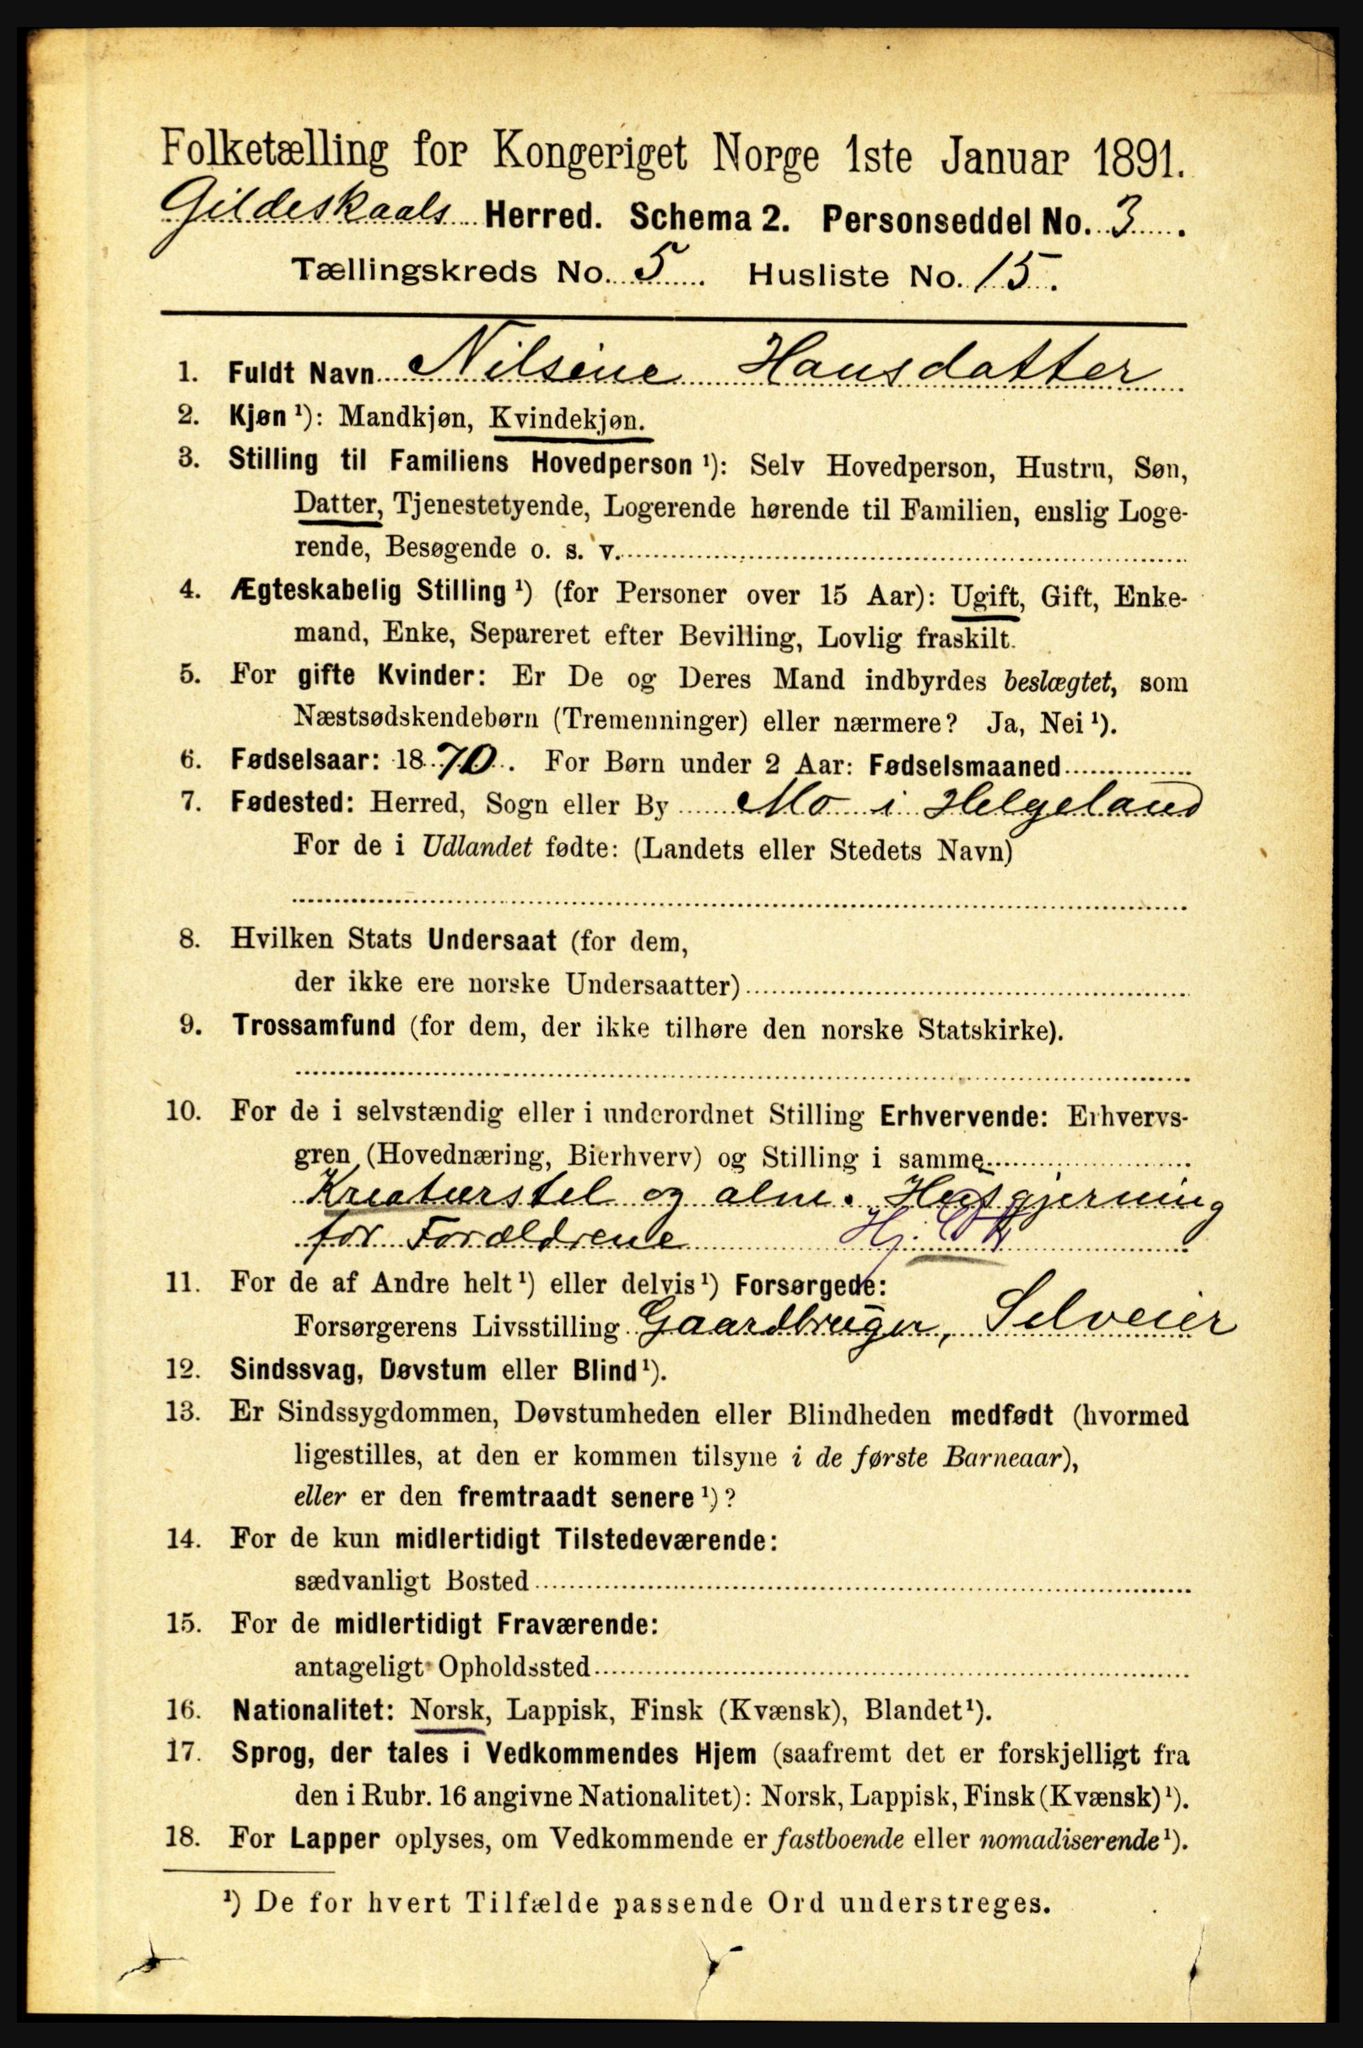 Folketælling for Kongeriget Norge 1ste Januar 1891.
Gildeskaals Herred. Schema 2. Personseddel No. 3.
Tællingskreds No. 5. Husliste No. 15.
1. Fuldt Navn Nilsine Hansdatter
2. Kjøn¹): Mandkjøn, Kvindekjøn.
3. Stilling til Familiens Hovedperson¹): Selv Hovedperson, Hustru, Søn,
Datter, Tjenestetyende, Logerende hørende til Familien, enslig Loge-
rende, Besøgende o. s. v.
4. Ægteskabelig Stilling¹) (for Personer over 15 Aar): Ugift, Gift, Enke-
mand, Enke, Separeret efter Bevilling, Lovlig fraskilt.
5. For gifte Kvinder: Er De og Deres Mand indbyrdes beslægtet, som
Næstsødskendebørn (Tremenninger) eller nærmere? Ja, Nei¹).
6. Fødselsaar: 1870. For Børn under 2 Aar: Fødselsmaaned
7. Fødested: Herred, Sogn eller By Mo i Helgeland
For de i Udlandet fødte: (Landets eller Stedets Navn)
8. Hvilken Stats Undersaat (for dem,
der ikke ere norske Undersaatter)
9. Trossamfund (for dem, der ikke tilhøre den norske Statskirke).
10. For de i selvstændig eller i underordnet Stilling Erhvervende: Erhvervs-
gren (Hovednæring, Bierhverv) og Stilling i samme
Kreaturstel og alm. Husgjerning
for Forældrene Hj.
11. For de af Andre helt¹) eller delvis¹) Forsørgede:
Forsørgerens Livsstilling Gaardbruger, Selveier
12. Sindssvag, Døvstum eller Blind¹).
13. Er Sindssygdommen, Døvstumheden eller Blindheden medfødt (hvormed
ligestilles, at den er kommen tilsyne i de første Barneaar),
eller er den fremtraadt senere¹)?
14. For de kun midlertidigt Tilstedeværende:
sædvanligt Bosted
15. For de midlertidigt Fraværende:
antageligt Opholdssted
16. Nationalitet: Norsk, Lappisk, Finsk (Kvænsk), Blandet¹).
17. Sprog, der tales i Vedkommendes Hjem (saafremt det er forskjelligt fra
den i Rubr. 16 angivne Nationalitet): Norsk, Lappisk, Finsk (Kvænsk)¹).
18. For Lapper oplyses, om Vedkommende er fastboende eller nomadiserende¹).
¹) De for hvert Tilfælde passende Ord understreges.